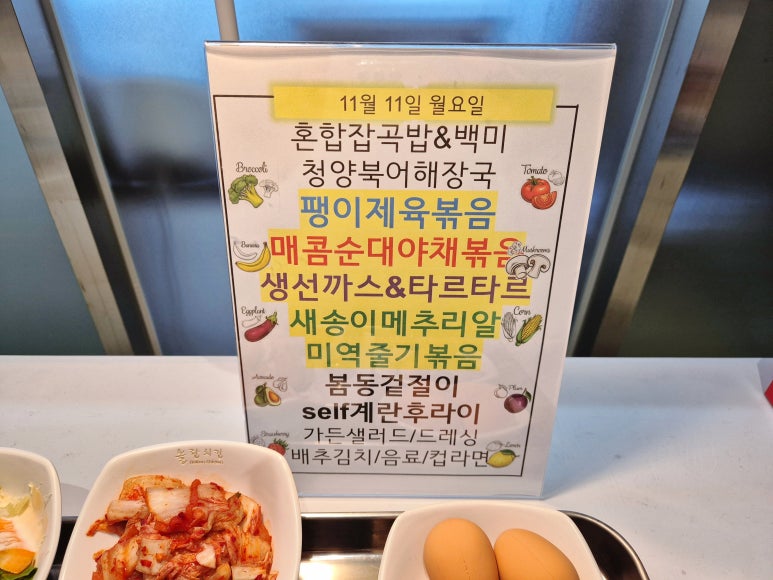 11월 11일 월요일
혼합잡곡밥&백미
청양북어해장국
Broccoli
Tomato
팽이제육볶음
매콤순대야채볶음
Banana
Mushrooms
생선까스&타르타르
Eggplant
Corn
새송이메추리알
미역줄기볶음
Avocado
Plum
봄동겉절이
self계란후라이
Strawberry
가든샐러드/드레싱
Lemon
배추김치/음료/컵라면